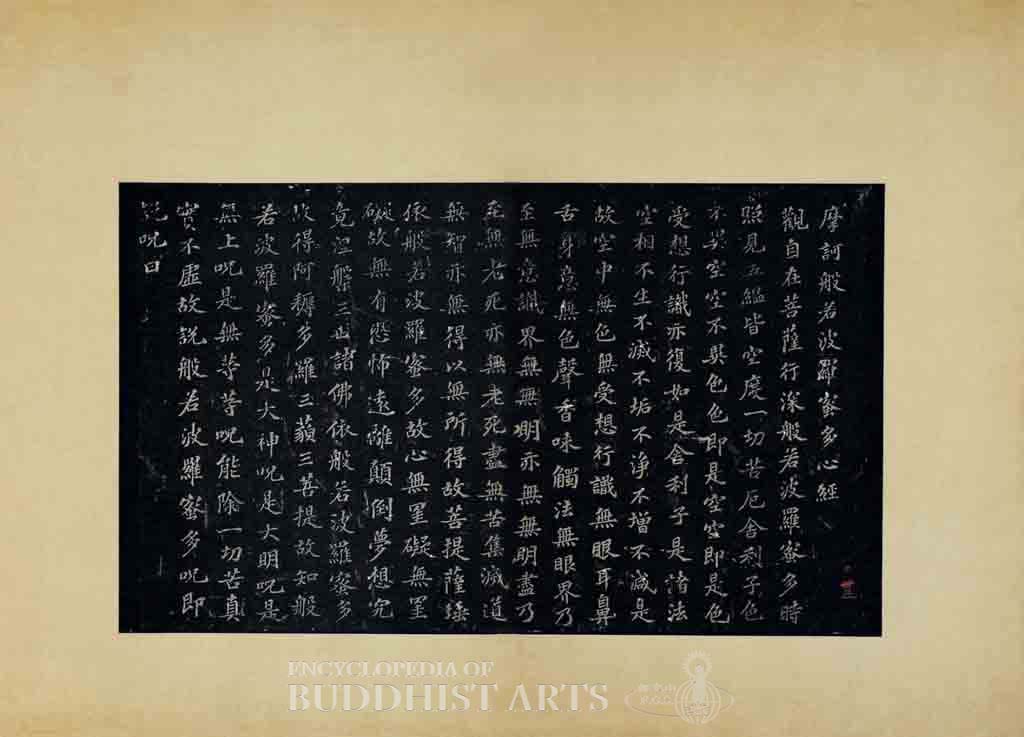 摩訶般若波羅蜜多心經
觀自在菩薩行深般若波羅蜜多時
照見五蘊皆空度一切苦厄舍利子色
不異空空不異色色即是空空即是色
受想行識亦復如是舍利子是諸法
空相不生不滅不垢不淨不增不減是
故空中無色無受想行識無眼耳鼻
舌身意無色聲香味觸法無眼界乃
至無意識界無無明亦無無明盡乃
至無老死亦無老死盡無苦集滅道
無智亦無得以無所得故菩提薩埵
依般若波羅蜜多故心無罣礙無罣
礙故無有恐怖遠離顛倒夢想究
竟涅槃三世諸佛依般若波羅蜜多
故得阿耨多羅三藐三菩提故知般
若波羅蜜多是大神呪是大明呪是
無上呪是無等等呪能除一切苦真
實不虛故説般若波羅蜜多呪即
説呪曰
ENCYCLOPEDIA OF
BUDDHIST ARTS